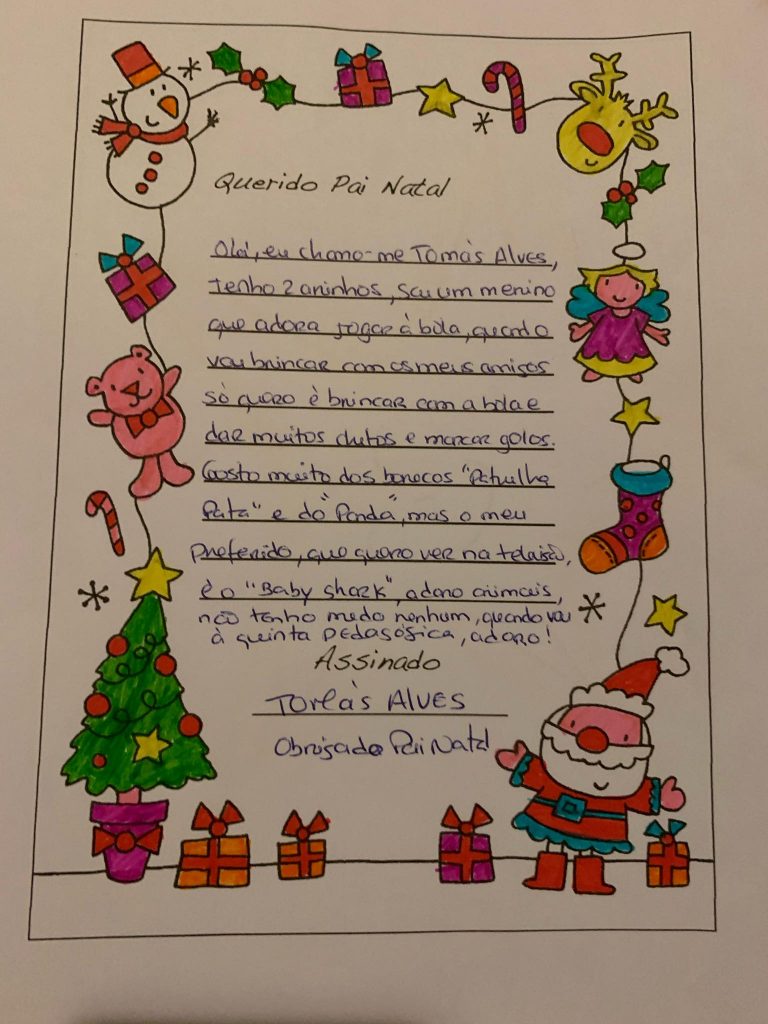 Querido Pai Natal
Olá, eu chamo-me Tomàs Alves,
tenho 2 aninhos, sou um menino
que adora jogar à bola, quando
vou brincar com os meus amigos
só quero è brincar com a bola e
dar muitos chutos e marcar golos.
Gosto muito dos bonecos "Patrulha
Pata" e do "Panda", mas o meu
preferido, que quero ver na televisão,
é o "Baby Shark", adoro animais,
não tenho medo nenhum, quando vou
à quinta pedagógica, adoro!
Assinado
Tomàs Alves
Obrigado Pai Natal